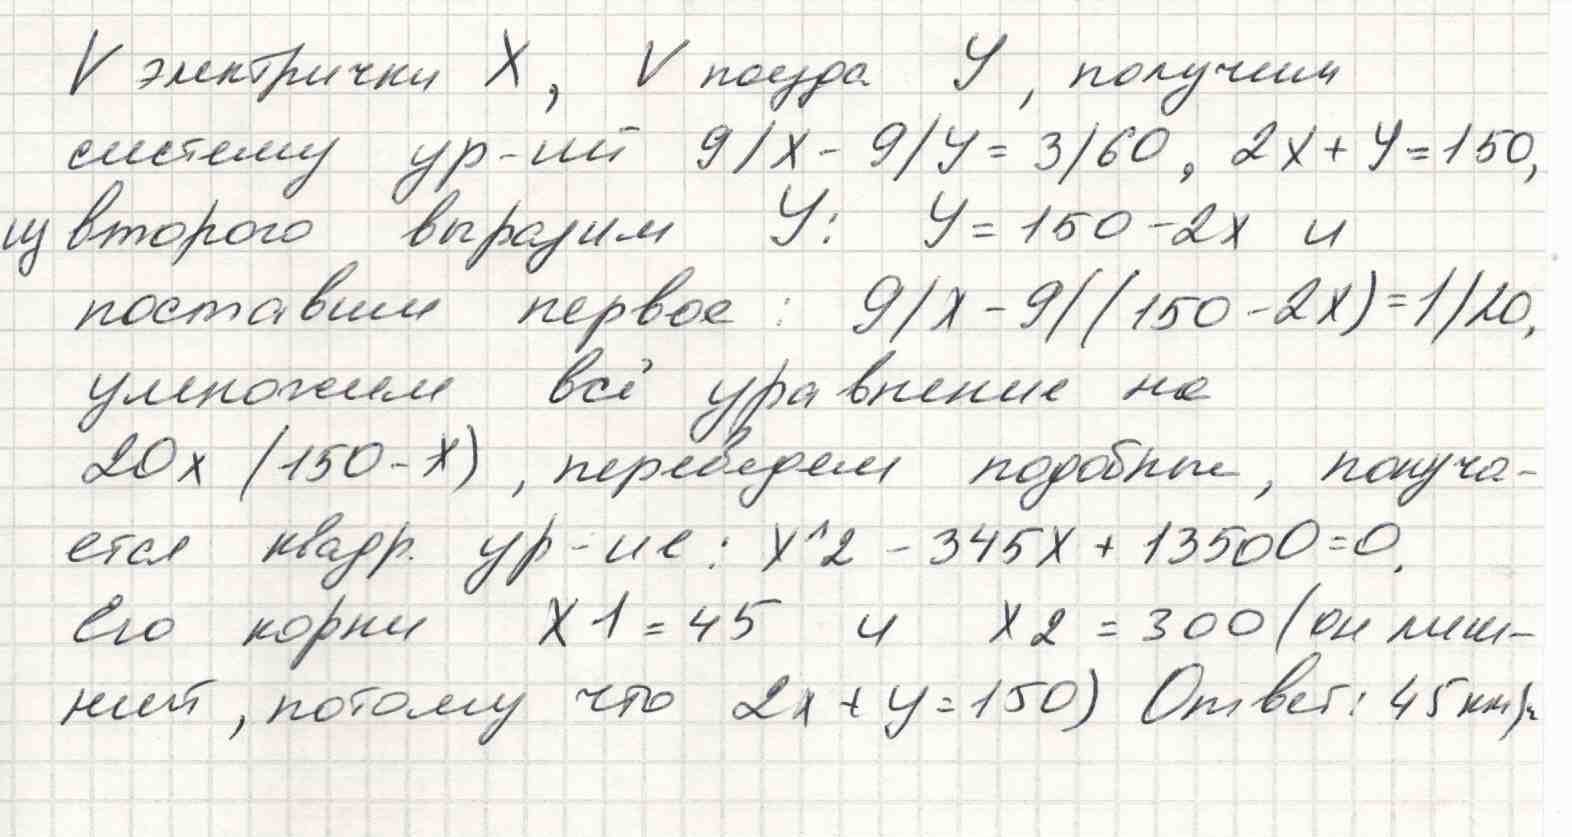 V электрички X, V поезда У, получим
систему ур-ий 9/X - 9/У = 3/60, 2X + У = 150,
из второго выразим У: У = 150 - 2X и
поставим первое: 9/X - 9/(150 - 2X) = 1/20,
умножим всё уравнение на
20x (150 - X), переведем подобные, получа-
ется квадр. ур-ие: X^2 - 345X + 13500 = 0.
Его корни X1 = 45 и X2 = 300 (он лиш-
ний, потому что 2x + y = 150) Ответ: 45 км/ч